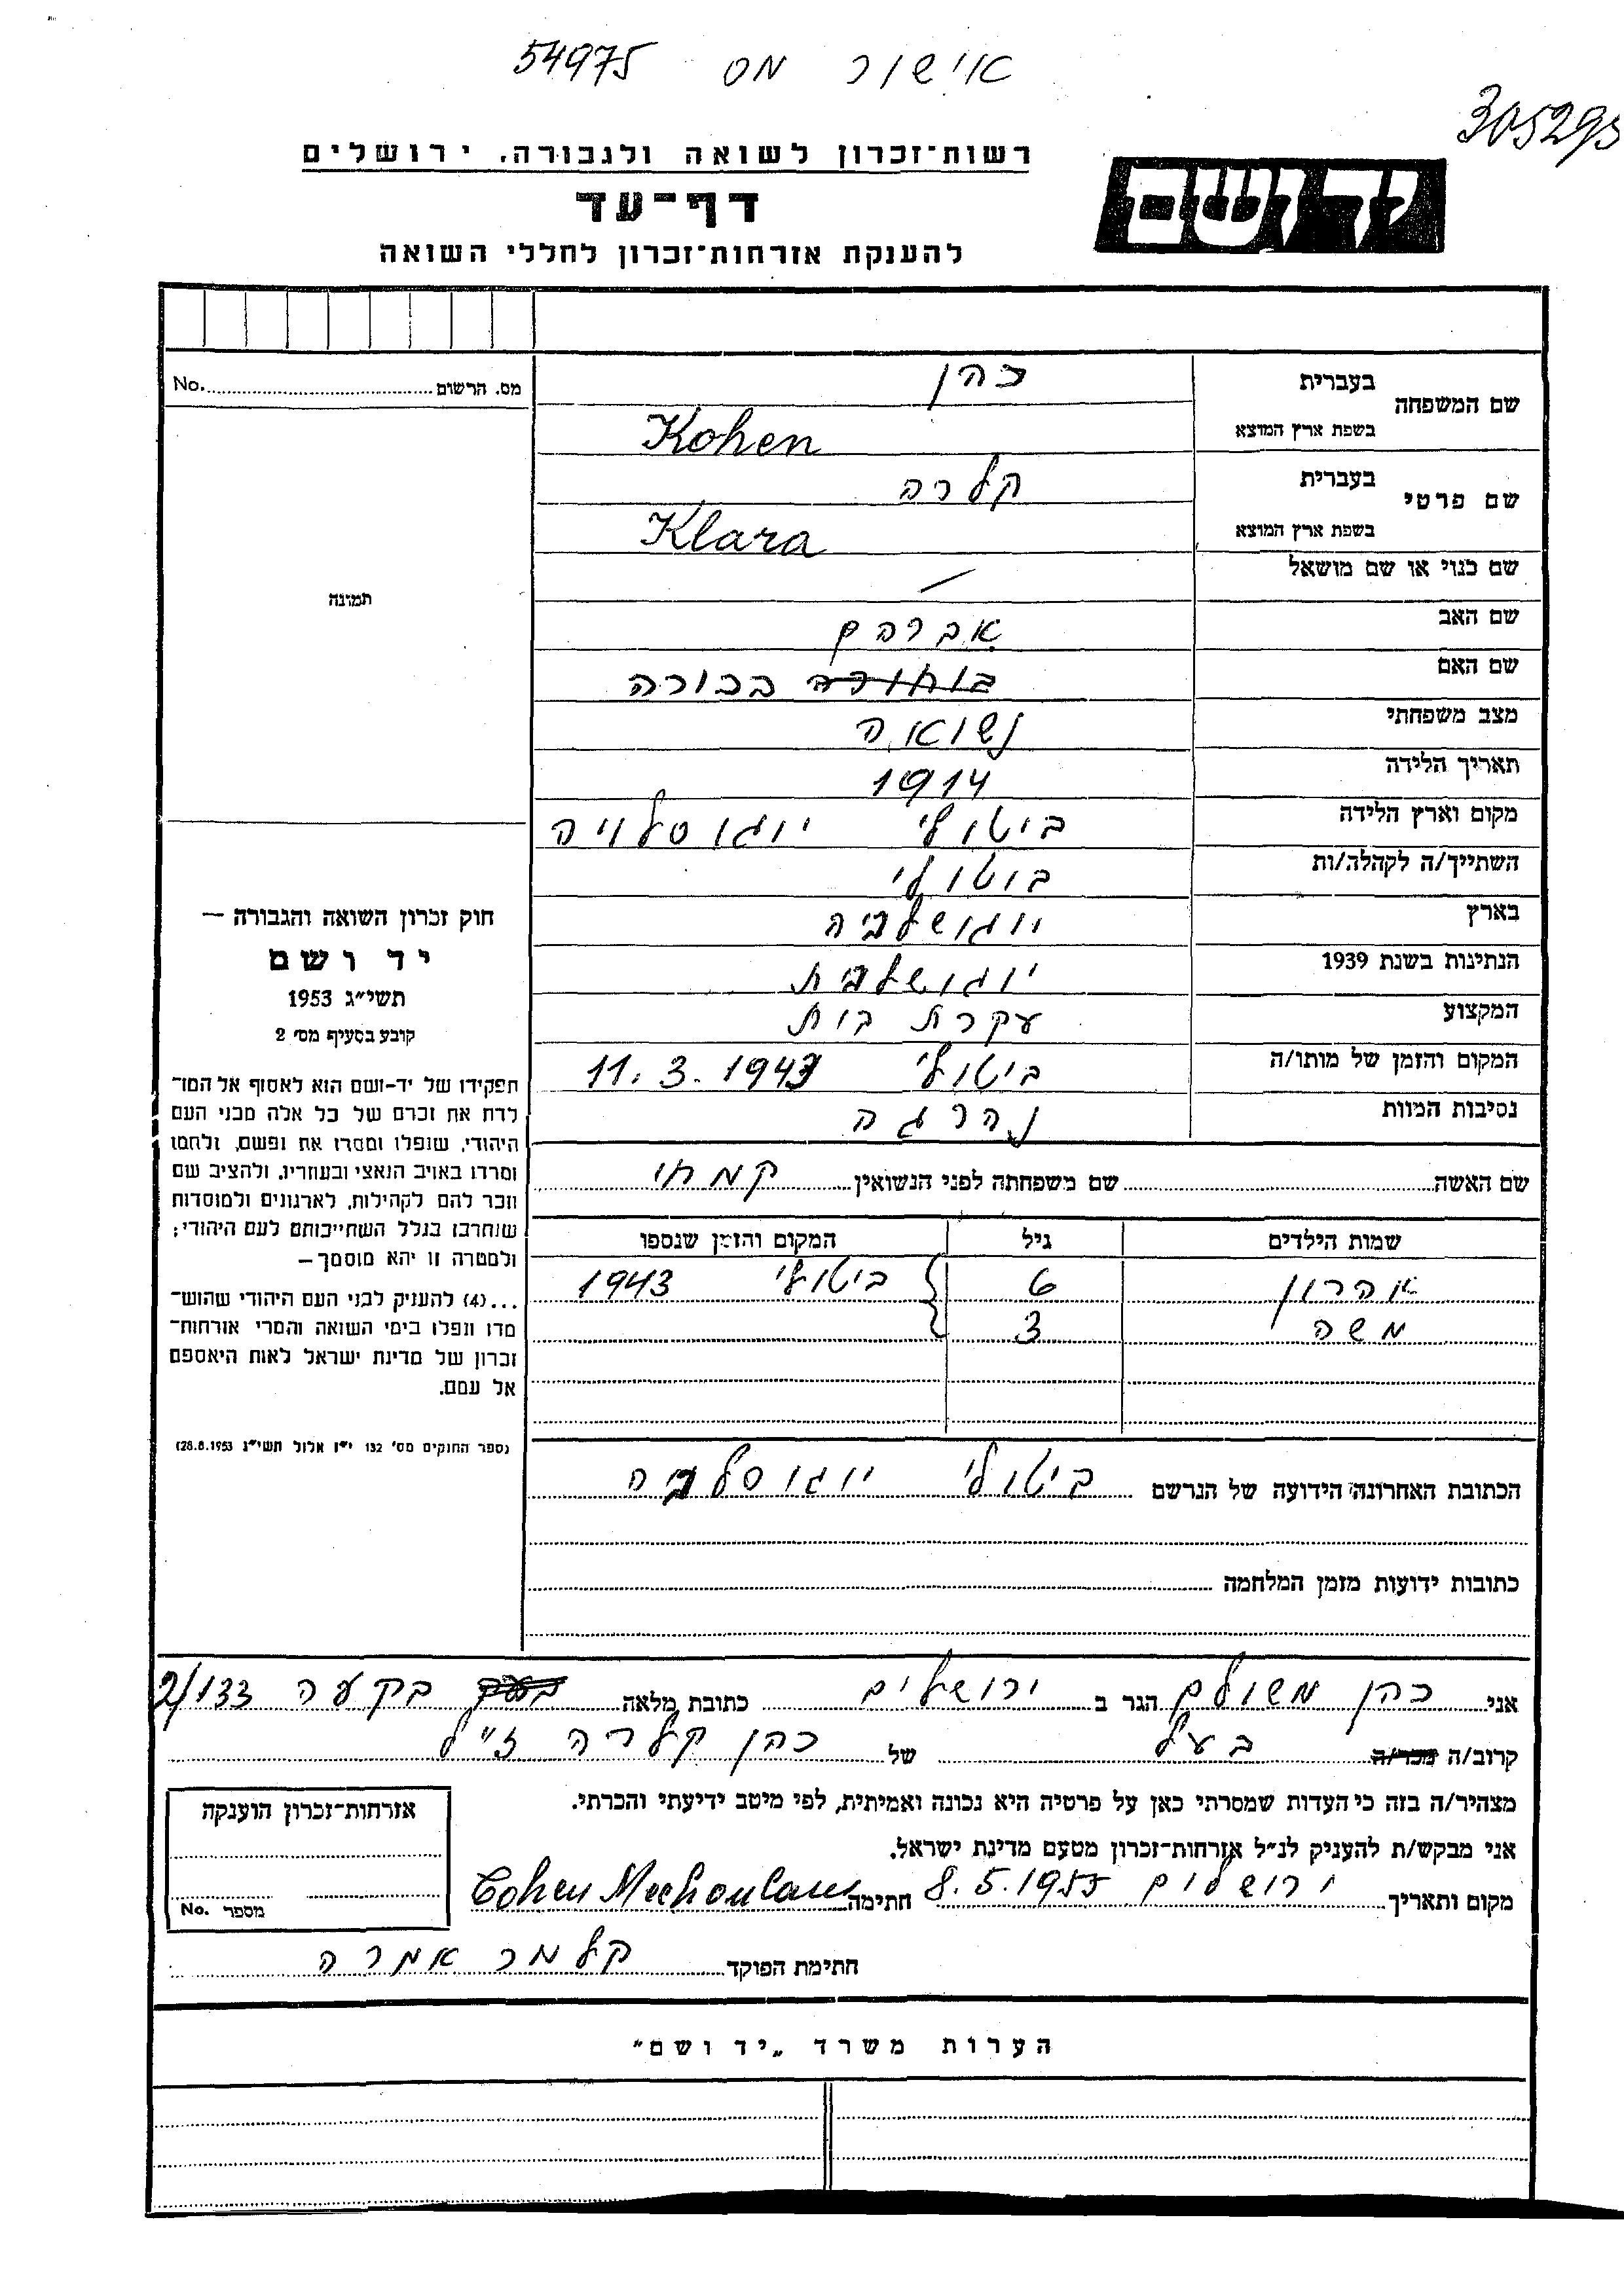 אישור מס 54975
305295
רשות־זכרון לשואה ולגבורה, ירושלים
יד ושם
דף־עד
להענקת אזרחות־זכרון לחללי השואה
מס. הרשום No.
שם המשפחה בעברית כהן
בשפת ארץ המוצא Kohen
שם פרטי בעברית קלרה
בשפת ארץ המוצא Klara
שם כנוי או שם מושאל —
תמונה
שם האב אברהם
שם האם בכורה
מצב משפחתי נשואה
תאריך הלידה 1914
מקום וארץ הלידה ביטולי יוגוסלויה
השתייך/ה לקהלה/ות ביטולי
בארץ יוגושלביה
הנתינות בשנת 1939 יוגושלבית
המקצוע עקרת בית
המקום והזמן של מותו/ה ביטולי 11.3.1943
נסיבות המוות נהרגה
שם האשה שם משפחתה לפני הנשואין קמחי
שמות הילדים גיל המקום והזמן שנספו
אהרון 6 ביטולי 1943
משה 3
חוק זכרון השואה והגבורה —
יד ושם
תשי״ג 1953
קובע בסעיף מס׳ 2
תפקידו של יד-ושם הוא לאסוף אל המו־
לדת את זכרם של כל אלה מבני העם
היהודי, שנפלו ומסרו את נפשם, נלחמו
ומרדו באויב הנאצי ובעוזריו, ולהציב שם
וזכר להם לקהילות, לארגונים ולמוסדות
שנחרבו בגלל השתייכותם לעם היהודי;
ולמטרה זו יהא מוסמך—
...(4) להעניק לבני העם היהודי שהוש־
מדו ונפלו בימי השואה והמרי אזרחות־
זכרון של מדינת ישראל לאות היאספם
אל עמם.
(ספר החוקים מס׳ 132 י״ז אלול תשי״ג 28.8.1953)
הכתובת האחרונה הידועה של הנרשם ביטולי יוגוסלביה
כתובות ידועות מזמן המלחמה
אני כהן משולם הגר ב ירושלים כתובת מלאה בקעה 2/133
קרוב/ה מכר/ה בעל של כהן קלרה ז״ל
מצהיר/ה בזה כי העדות שמסרתי כאן על פרטיה היא נכונה ואמיתית, לפי מיטב ידיעתי והכרתי.
אני מבקש/ת להעניק לנ״ל אזרחות־זכרון מטעם מדינת ישראל.
מקום ותאריך ירושלים 8.5.1955 חתימה Cohen Mechoulam
חתימת הפוקד קלמר אמרה
אזרחות־זכרון הוענקה
מספר No.
הערות משרד „יד ושם״